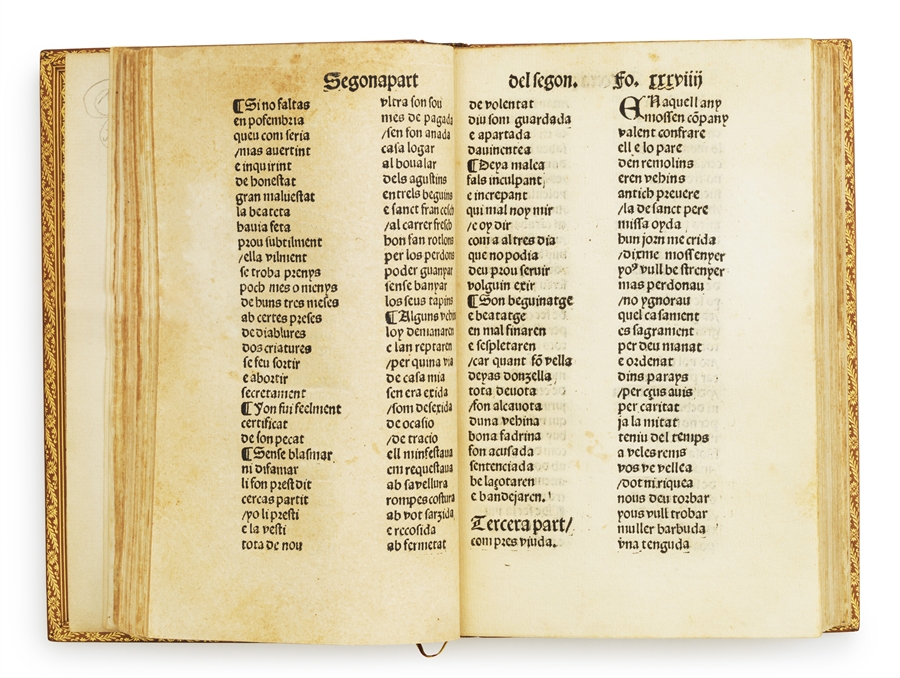 Segonapart
¶Si no faltas
en posembria
queu com seria
/mas auertint
e inquirint
de honestat
gran maluestat
la beateta
hauia feta
prou subtilment
/ella vilment
se troba prenys
poch mes o menys
de huns tres meses
ab certes preses
de diablures
dos criatures
se feu sortir
e abortir
secretament
¶Yon fui feelment
certificat
de son pecat
¶Sense blasmar
ni difamar
li fon prest dit
cercas partit
/yo li presti
e la vesti
tota de nou
vltra son sou
mes de pagada
/sen fon anada
casa logar
al boualar
dels agustins
entrels beguins
e sanct francesch
/al carrer fresch
bon fan rotlons
per los perdons
poder guanyar
sense banyar
los seus tapins
¶Alguns vehins
loy demanaren
e lan reptaren
/per quina via
de casa mia
sen era exida
/som desexida
de ocasio
/de tracio
ell minfestaua
em requestaua
ab sa vellura
rompes costura
ab vot sarzida
e recosida
ab fermetat
del segon. Fo. xxxviiij
de volentat
diu som guardada
e apartada
dauinentea
¶Deya malea
fals inculpant
e increpant
qui mal noy mir
/e oy dir
com a altres dia
que no podia
deu prou seruir
volguin exir
¶Son beguinatge
e beatatge
en mal finaren
e sespletaren
/car quant fō vella
deyas donzella
tota deuota
/fon alcauota
duna vehina
bona fadrina
fon acusada
sentenciada
be laçotaren
e bandejaren.
Tercera part/
com pres viuda.
EN aquell any
mossen cōpany
valent confrare
ell e lo pare
den remolins
eren vehins
antich preuere
/la de sanct pere
missa oyda
hun jorn me crida
/dixme mossenyer
yoꝰ vull be strenyer
mas perdonau
/no ygnorau
quel casament
es sagrament
per deu manat
e ordenat
dins parays
/per cꝗus auis
per caritat
ja la mitat
teniu del temps
a veles rems
vos ve vellea
/dot ni riquea
nous deu torbar
yous vull trobar
muller barbuda
vna tenguda